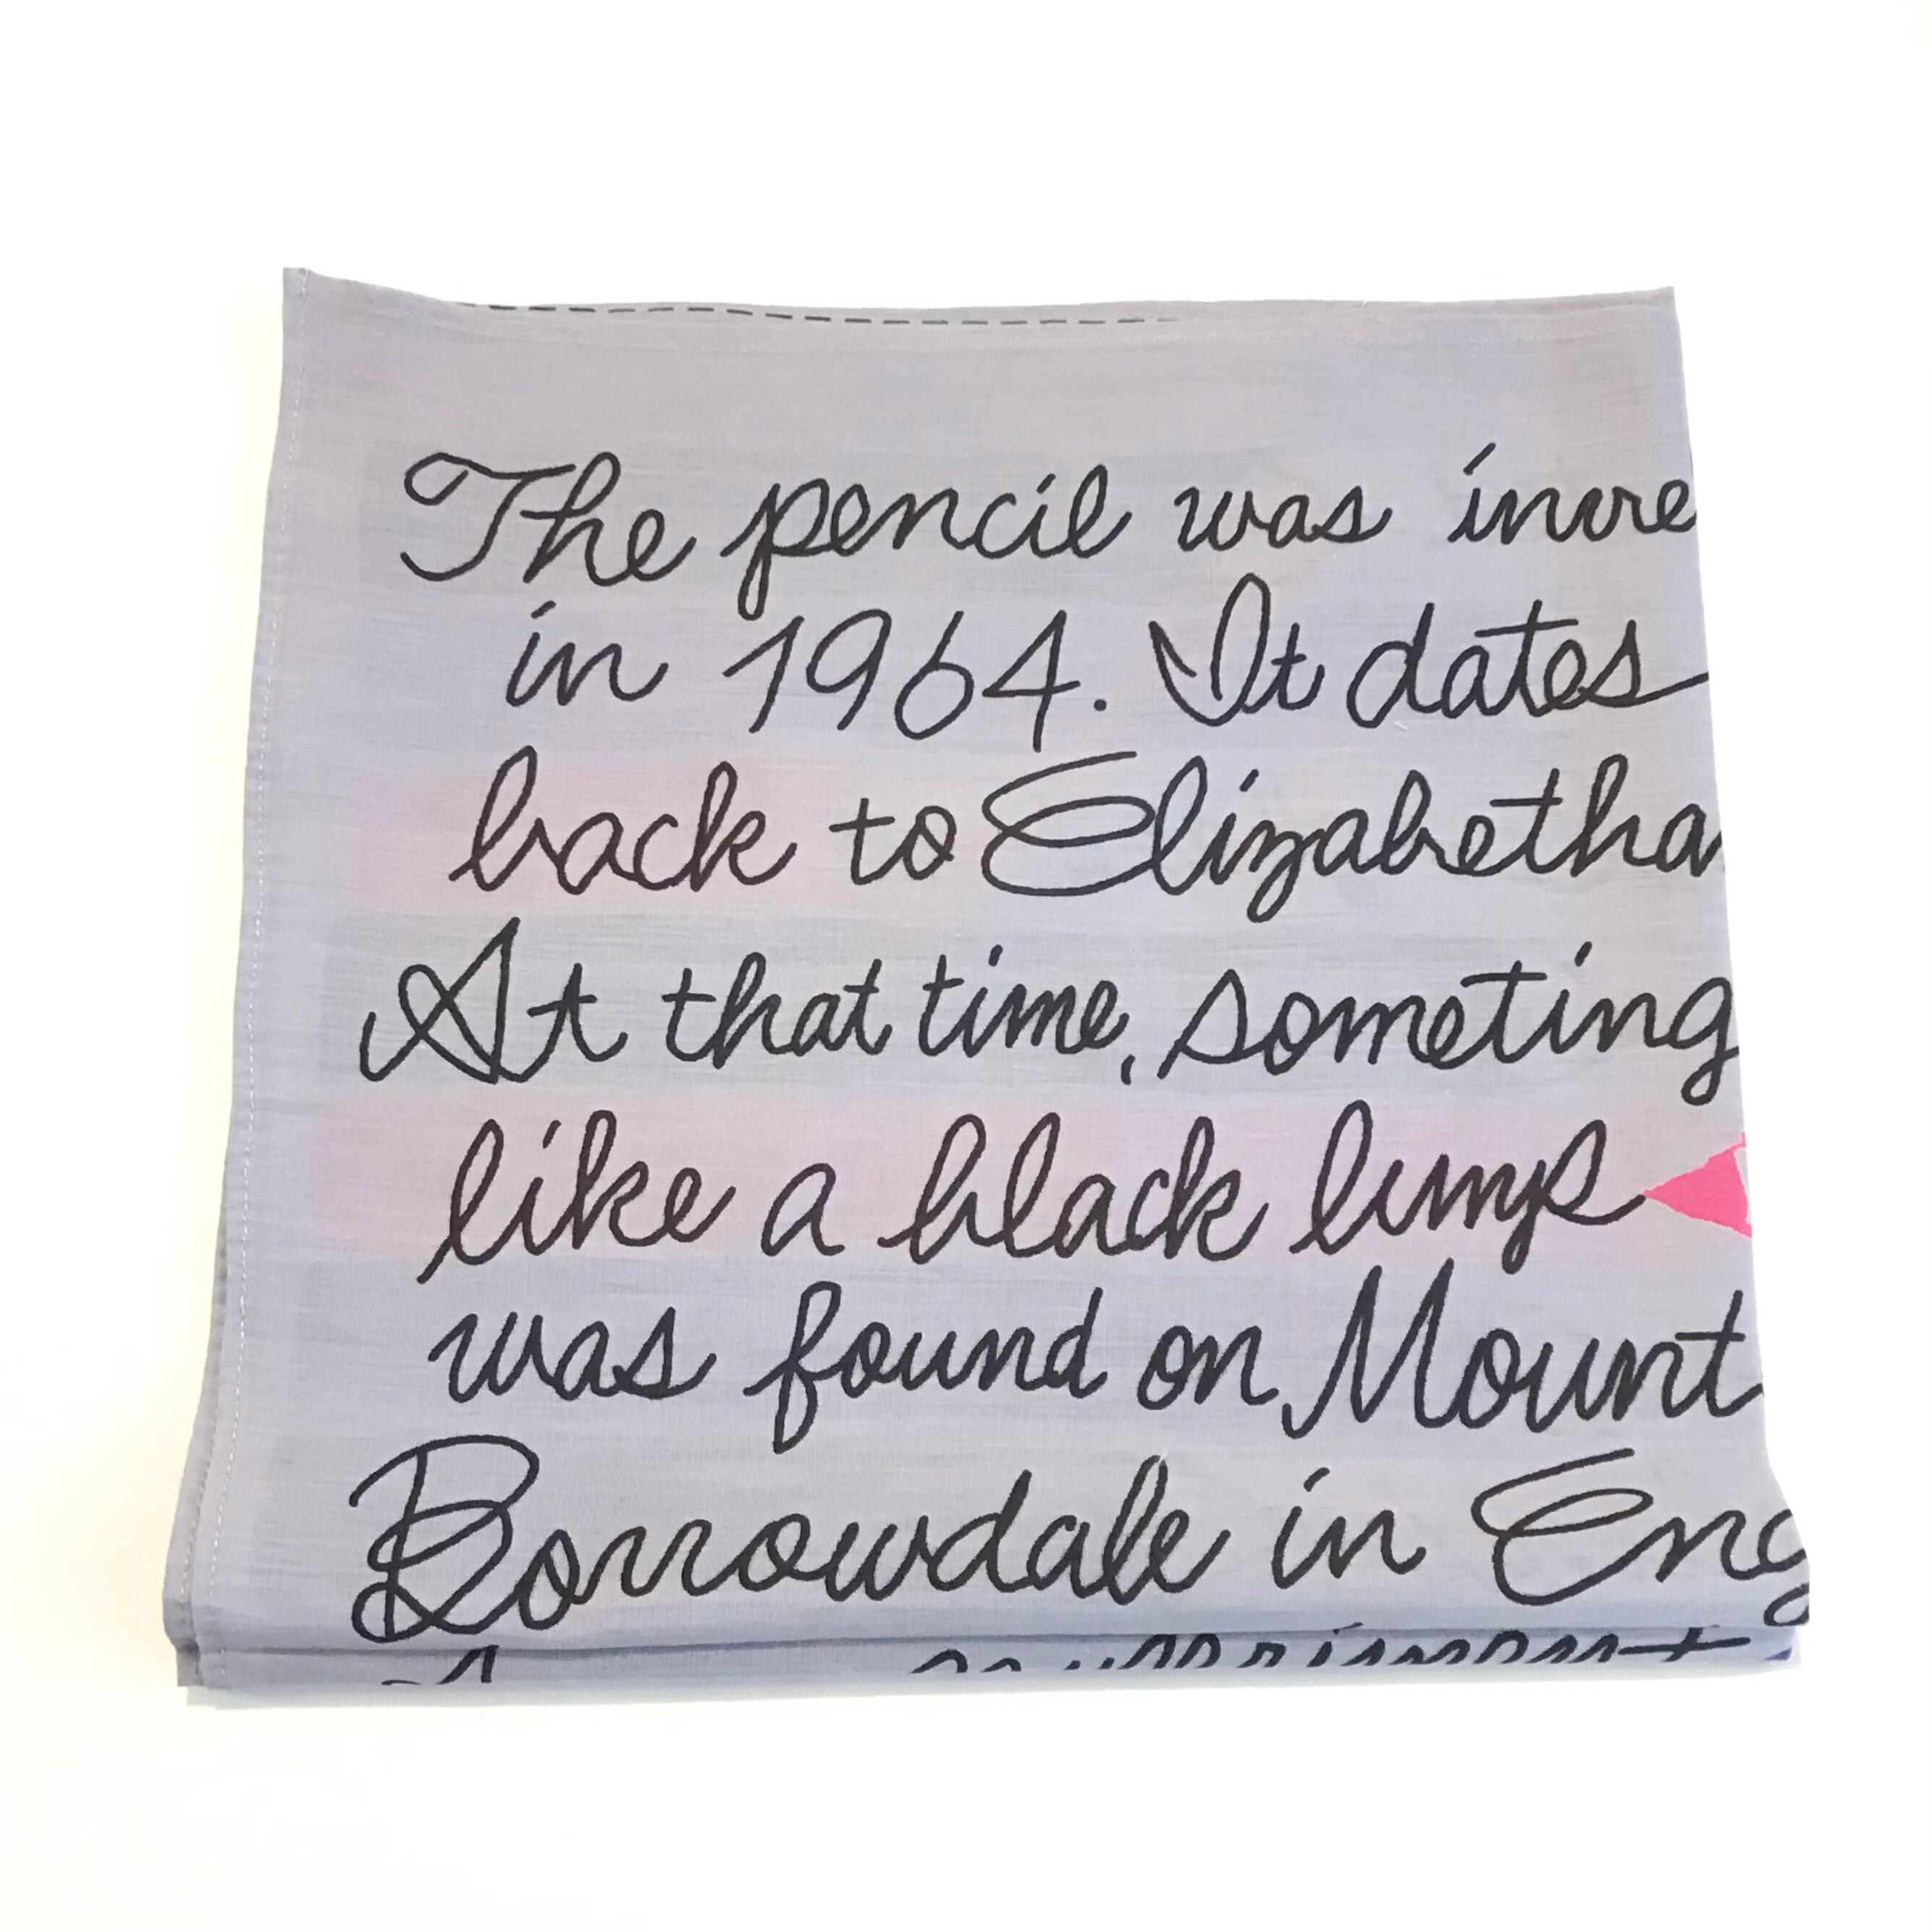 The pencil was inve
in 1964. It dates
back to Elizabetha
At that time, someting
like a black lump
was found on Mount
Borrowdale in Eng